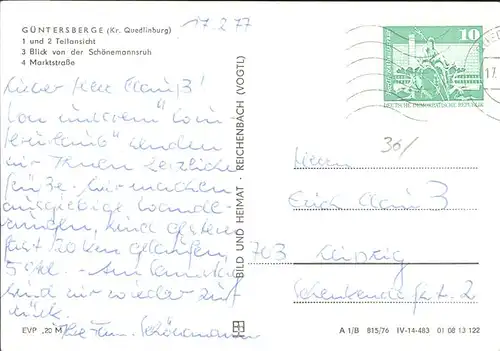 GÜNTERSBERGE (Kr. Quedlinburg)
1 und 2 Teilansicht
3 Blick von der Schönemannsruh
4 Marktstraße
17.2.77
Lieber Herr Clauß!
Von unserem
senden
wir Ihnen herzliche
Grüße. Wir machen
ausgiebige Wander-
ungen, sind gestern
fast 20 km gelaufen,
5 Std. - Am
sind wir wieder zu-
rück.
Ihre Fam. Schönemann
EVP ,20 M
BILD UND HEIMAT · REICHENBACH (VOGTL)
10
DEUTSCHE DEMOKRATISCHE REPUBLIK
17.
30/
Herrn
Erich Clauß
703 Leipzig
Str. 2
A 1/B 815/76 IV-14-483 01 08 13 122